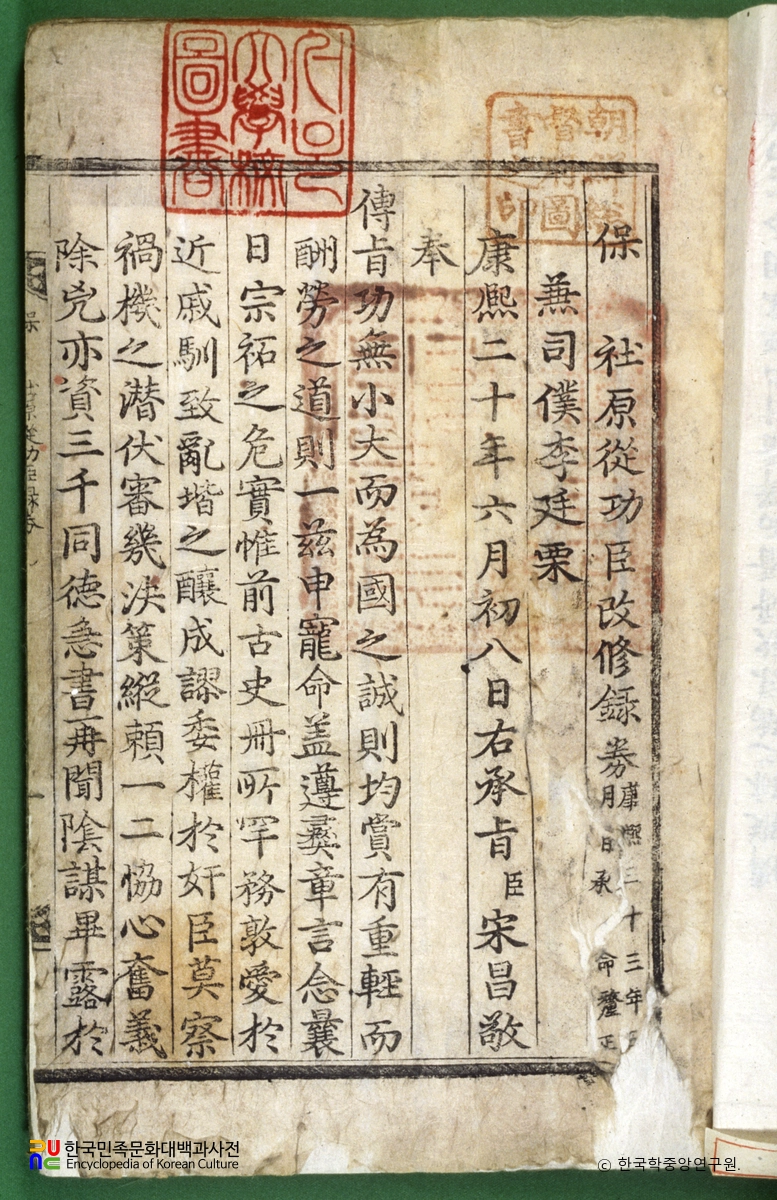 保社原從功臣改修錄券康熙三十三年
月日承命釐正
兼司僕李廷栗
康熙二十年六月初八日右承旨臣宋昌
奉
傳旨功無小大而為國之誠則均賞有重輕而
酬勞之道則一茲申寵命盖遵彞章言念曩
日宗祏之危實惟前古史冊所罕務敦愛於
近戚馴致亂堦之釀成謬委權於奸臣莫察
禍機之潛伏審幾決策縱賴一二恊心奮義
除兇亦資三千同德急書再聞陰謀畢露於
朝鮮總
督府圖
書之印
大學校
圖書
한국민족문화대백과사전
Encyclopedia of Korean Culture
© 한국학중앙연구원.